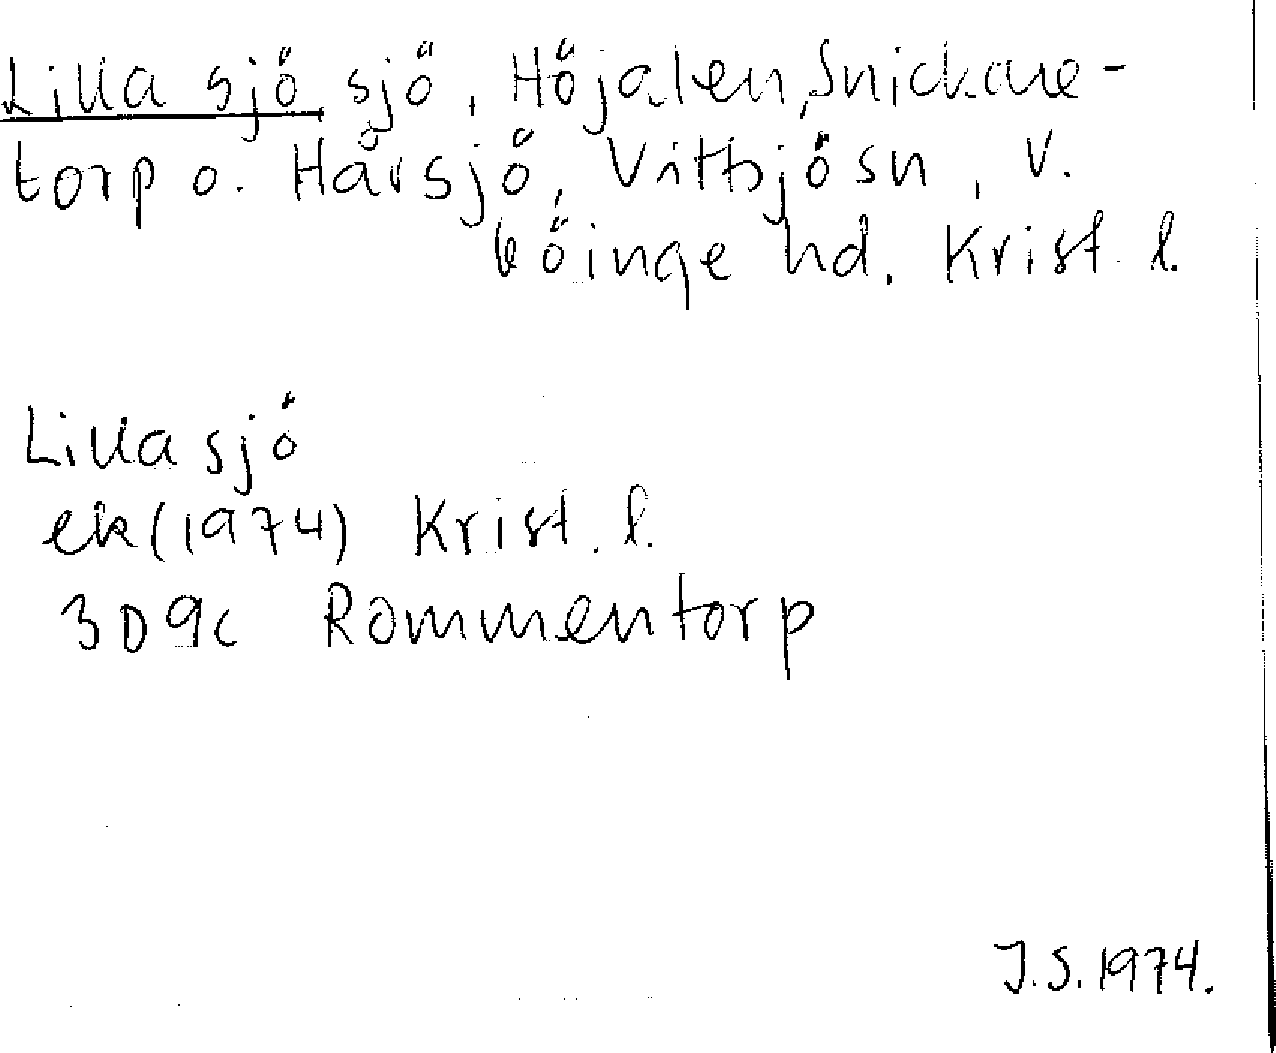 Lilla sjö, sjö, Höjalen, Snickare-
torp o. Hårsjö, Vittsjö sn, V.
Göinge hd. Krist. l.
Lilla sjö
ek (1974) Krist. l.
3D9c Rommentorp
J.S. 1974.